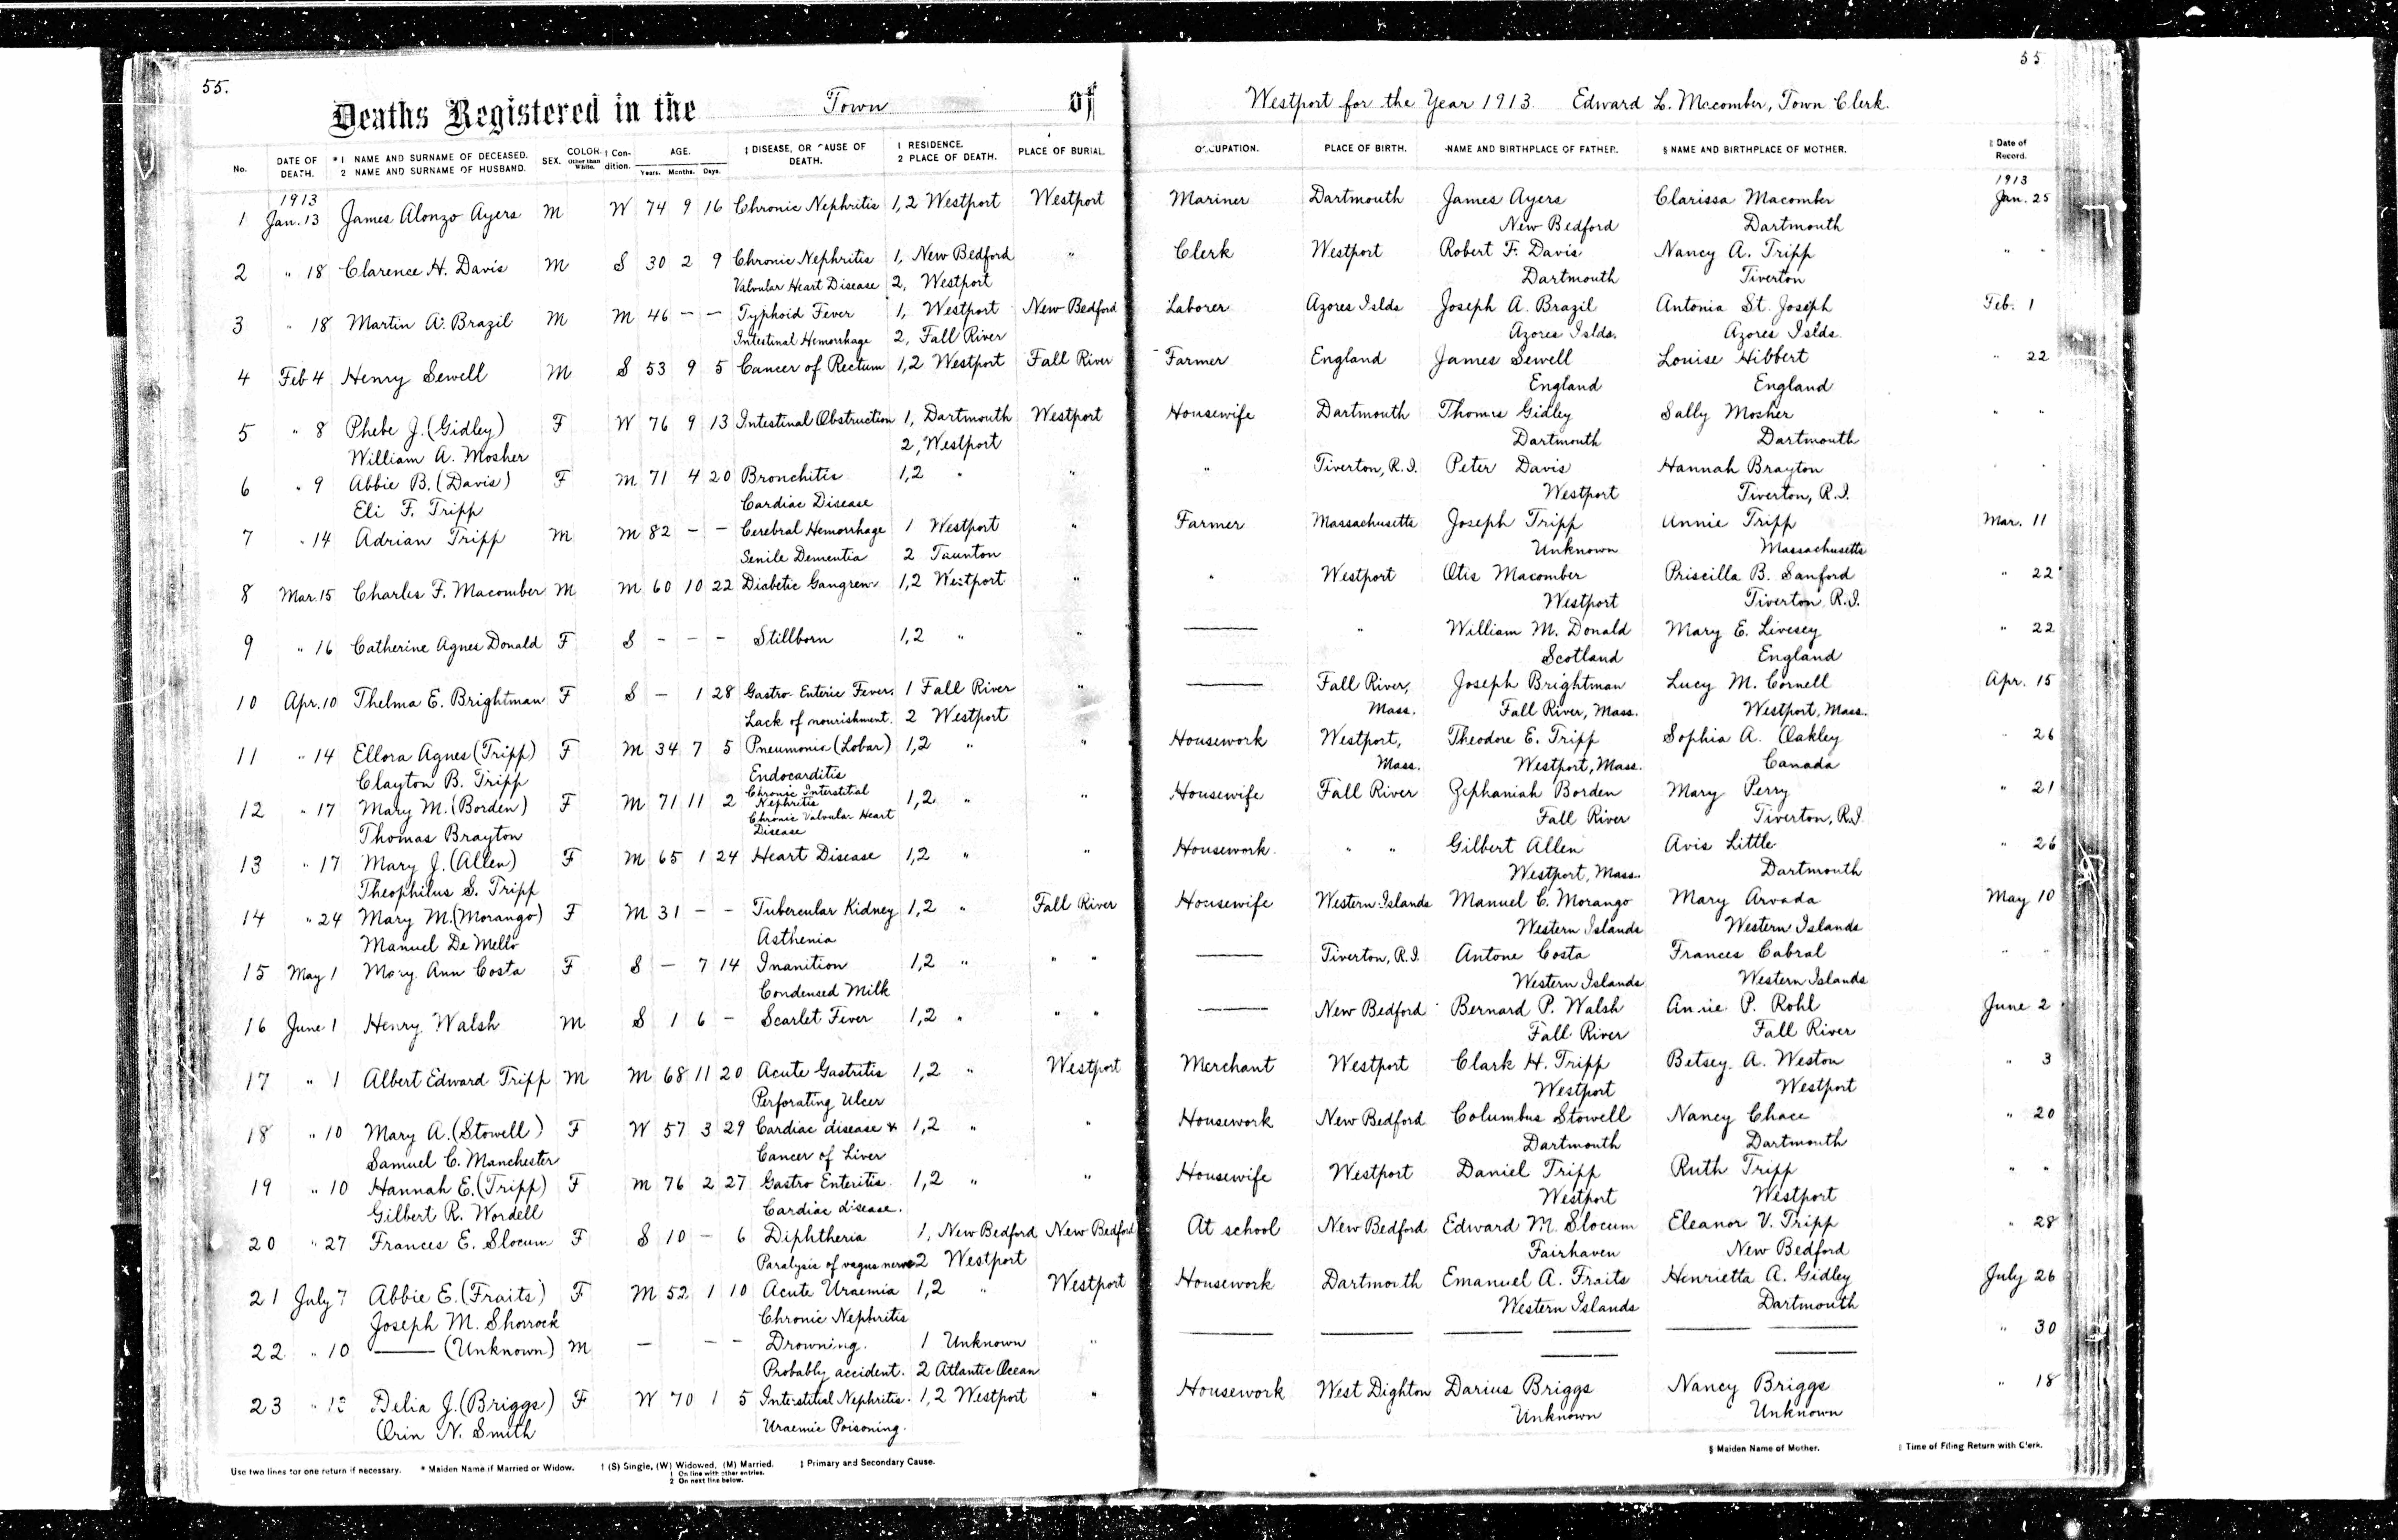 55.
55
Deaths Registered in the Town of Westport for the Year 1913. Edward L. Macomber, Town Clerk.
No. DATE OF DEATH. *1 NAME AND SURNAME OF DECEASED. 2 NAME AND SURNAME OF HUSBAND. SEX. COLOR. Other than White. † Condition. AGE. Years. Months. Days. ‡ DISEASE, OR CAUSE OF DEATH. 1 RESIDENCE. 2 PLACE OF DEATH. PLACE OF BURIAL. OCCUPATION. PLACE OF BIRTH. NAME AND BIRTHPLACE OF FATHER. § NAME AND BIRTHPLACE OF MOTHER. ‖ Date of Record.
1913 1913
1 Jan. 13 James Alonzo Ayers M W 74 9 16 Chronic Nephritis 1,2 Westport Westport Mariner Dartmouth James Ayers Clarissa Macomber Jan. 25
New Bedford Dartmouth
2 " 18 Clarence H. Davis M S 30 2 9 Chronic Nephritis 1, New Bedford " Clerk Westport Robert F. Davis Nancy A. Tripp " "
Valvular Heart Disease 2, Westport Dartmouth Tiverton
3 " 18 Martin A. Brazil M M 46 – – Typhoid Fever 1, Westport New Bedford Laborer Azores Islds Joseph A. Brazil Antonia St. Joseph Feb. 1
Intestinal Hemorrhage 2, Fall River Azores Islds. Azores Islds.
4 Feb 4 Henry Sewell M S 53 9 5 Cancer of Rectum 1,2 Westport Fall River Farmer England James Sewell Louise Hibbert " 22
England England
5 " 8 Phebe J. (Gidley) F W 76 9 13 Intestinal Obstruction 1, Dartmouth Westport Housewife Dartmouth Thomas Gidley Sally Mosher " "
William A. Mosher 2, Westport Dartmouth Dartmouth
6 " 9 Abbie B. (Davis) F M 71 4 20 Bronchitis 1,2 " " " Tiverton, R.I. Peter Davis Hannah Brayton " "
Eli F. Tripp Cardiac Disease Westport Tiverton, R.I.
7 " 14 Adrian Tripp M M 82 – – Cerebral Hemorrhage 1 Westport " Farmer Massachusetts Joseph Tripp Annie Tripp Mar. 11
Senile Dementia 2 Taunton Unknown Massachusetts
8 Mar. 15 Charles F. Macomber M M 60 10 22 Diabetic Gangrene 1,2 Westport " " Westport Otis Macomber Priscilla B. Sanford " 22
Westport Tiverton, R.I.
9 " 16 Catherine Agnes Donald F S – – – Stillborn 1,2 " " — " William M. Donald Mary E. Livesey " 22
Scotland England
10 Apr. 10 Thelma E. Brightman F S – 1 28 Gastro-Enteric Fever. 1 Fall River " — Fall River, Joseph Brightman Lucy M. Cornell Apr. 15
Lack of nourishment. 2 Westport Mass. Fall River, Mass. Westport, Mass.
11 " 14 Ellora Agnes (Tripp) F M 34 7 5 Pneumonia (Lobar) 1,2 " " Housework Westport, Theodore E. Tripp Sophia A. Oakley " 26
Clayton B. Tripp Endocarditis Mass. Westport, Mass. Canada
12 " 17 Mary M. (Borden) F M 71 11 2 Chronic Interstitial Nephritis 1,2 " " Housewife Fall River Zephaniah Borden Mary Perry " 21
Thomas Brayton Chronic Valvular Heart Disease Fall River Tiverton, R.I.
13 " 17 Mary J. (Allen) F M 65 1 24 Heart Disease 1,2 " " Housework " " Gilbert Allen Avis Little " 26
Theophilus S. Tripp Westport, Mass. Dartmouth
14 " 24 Mary M. (Morango) F M 31 – – Tubercular Kidney 1,2 " Fall River Housewife Western Islands Manuel C. Morango Mary Arvada May 10
Manuel De Mello Asthenia Western Islands Western Islands
15 May 1 Mary Ann Costa F S – 7 14 Inanition 1,2 " " " — Tiverton, R.I. Antone Costa Frances Cabral " "
Condensed Milk Western Islands Western Islands
16 June 1 Henry Walsh M S 1 6 – Scarlet Fever 1,2 " " " — New Bedford Bernard P. Walsh Annie P. Rohl June 2
Fall River Fall River
17 " 1 Albert Edward Tripp M M 68 11 20 Acute Gastritis 1,2 " Westport Merchant Westport Clark H. Tripp Betsey A. Weston " 3
Perforating Ulcer Westport Westport
18 " 10 Mary A. (Stowell) F W 57 3 29 Cardiac disease & 1,2 " " Housework New Bedford Columbus Stowell Nancy Chace " 20
Samuel C. Manchester Cancer of Liver Dartmouth Dartmouth
19 " 10 Hannah E. (Tripp) F M 76 2 27 Gastro Enteritis. 1,2 " " Housewife Westport Daniel Tripp Ruth Tripp " "
Gilbert R. Wordell Cardiac disease. Westport Westport
20 " 27 Frances E. Slocum F S 10 – 6 Diphtheria 1, New Bedford New Bedford At school New Bedford Edward M. Slocum Eleanor V. Tripp " 28
Paralysis of vagus nerve 2 Westport Fairhaven New Bedford
21 July 7 Abbie E. (Fraits) F M 52 1 10 Acute Uraemia 1,2 " Westport Housework Dartmouth Emanuel A. Fraits Henrietta A. Gidley July 26
Joseph M. Shorrock Chronic Nephritis Western Islands Dartmouth
22 " 10 — (Unknown) M — – – Drowning. 1 Unknown " — — — — — — " 30
Probably accident. 2 Atlantic Ocean — —
23 " Delia J. (Briggs) F W 70 1 5 Interstitial Nephritis. 1,2 Westport " Housework West Dighton Darius Briggs Nancy Briggs " 18
Orin N. Smith Uraemic Poisoning. Unknown Unknown
Use two lines for one return if necessary. * Maiden Name if Married or Widow. † (S) Single, (W) Widowed, (M) Married. ‡ Primary and Secondary Cause. § Maiden Name of Mother. ‖ Time of Filing Return with Clerk.
1 On line with other entries.
2 On next line below.